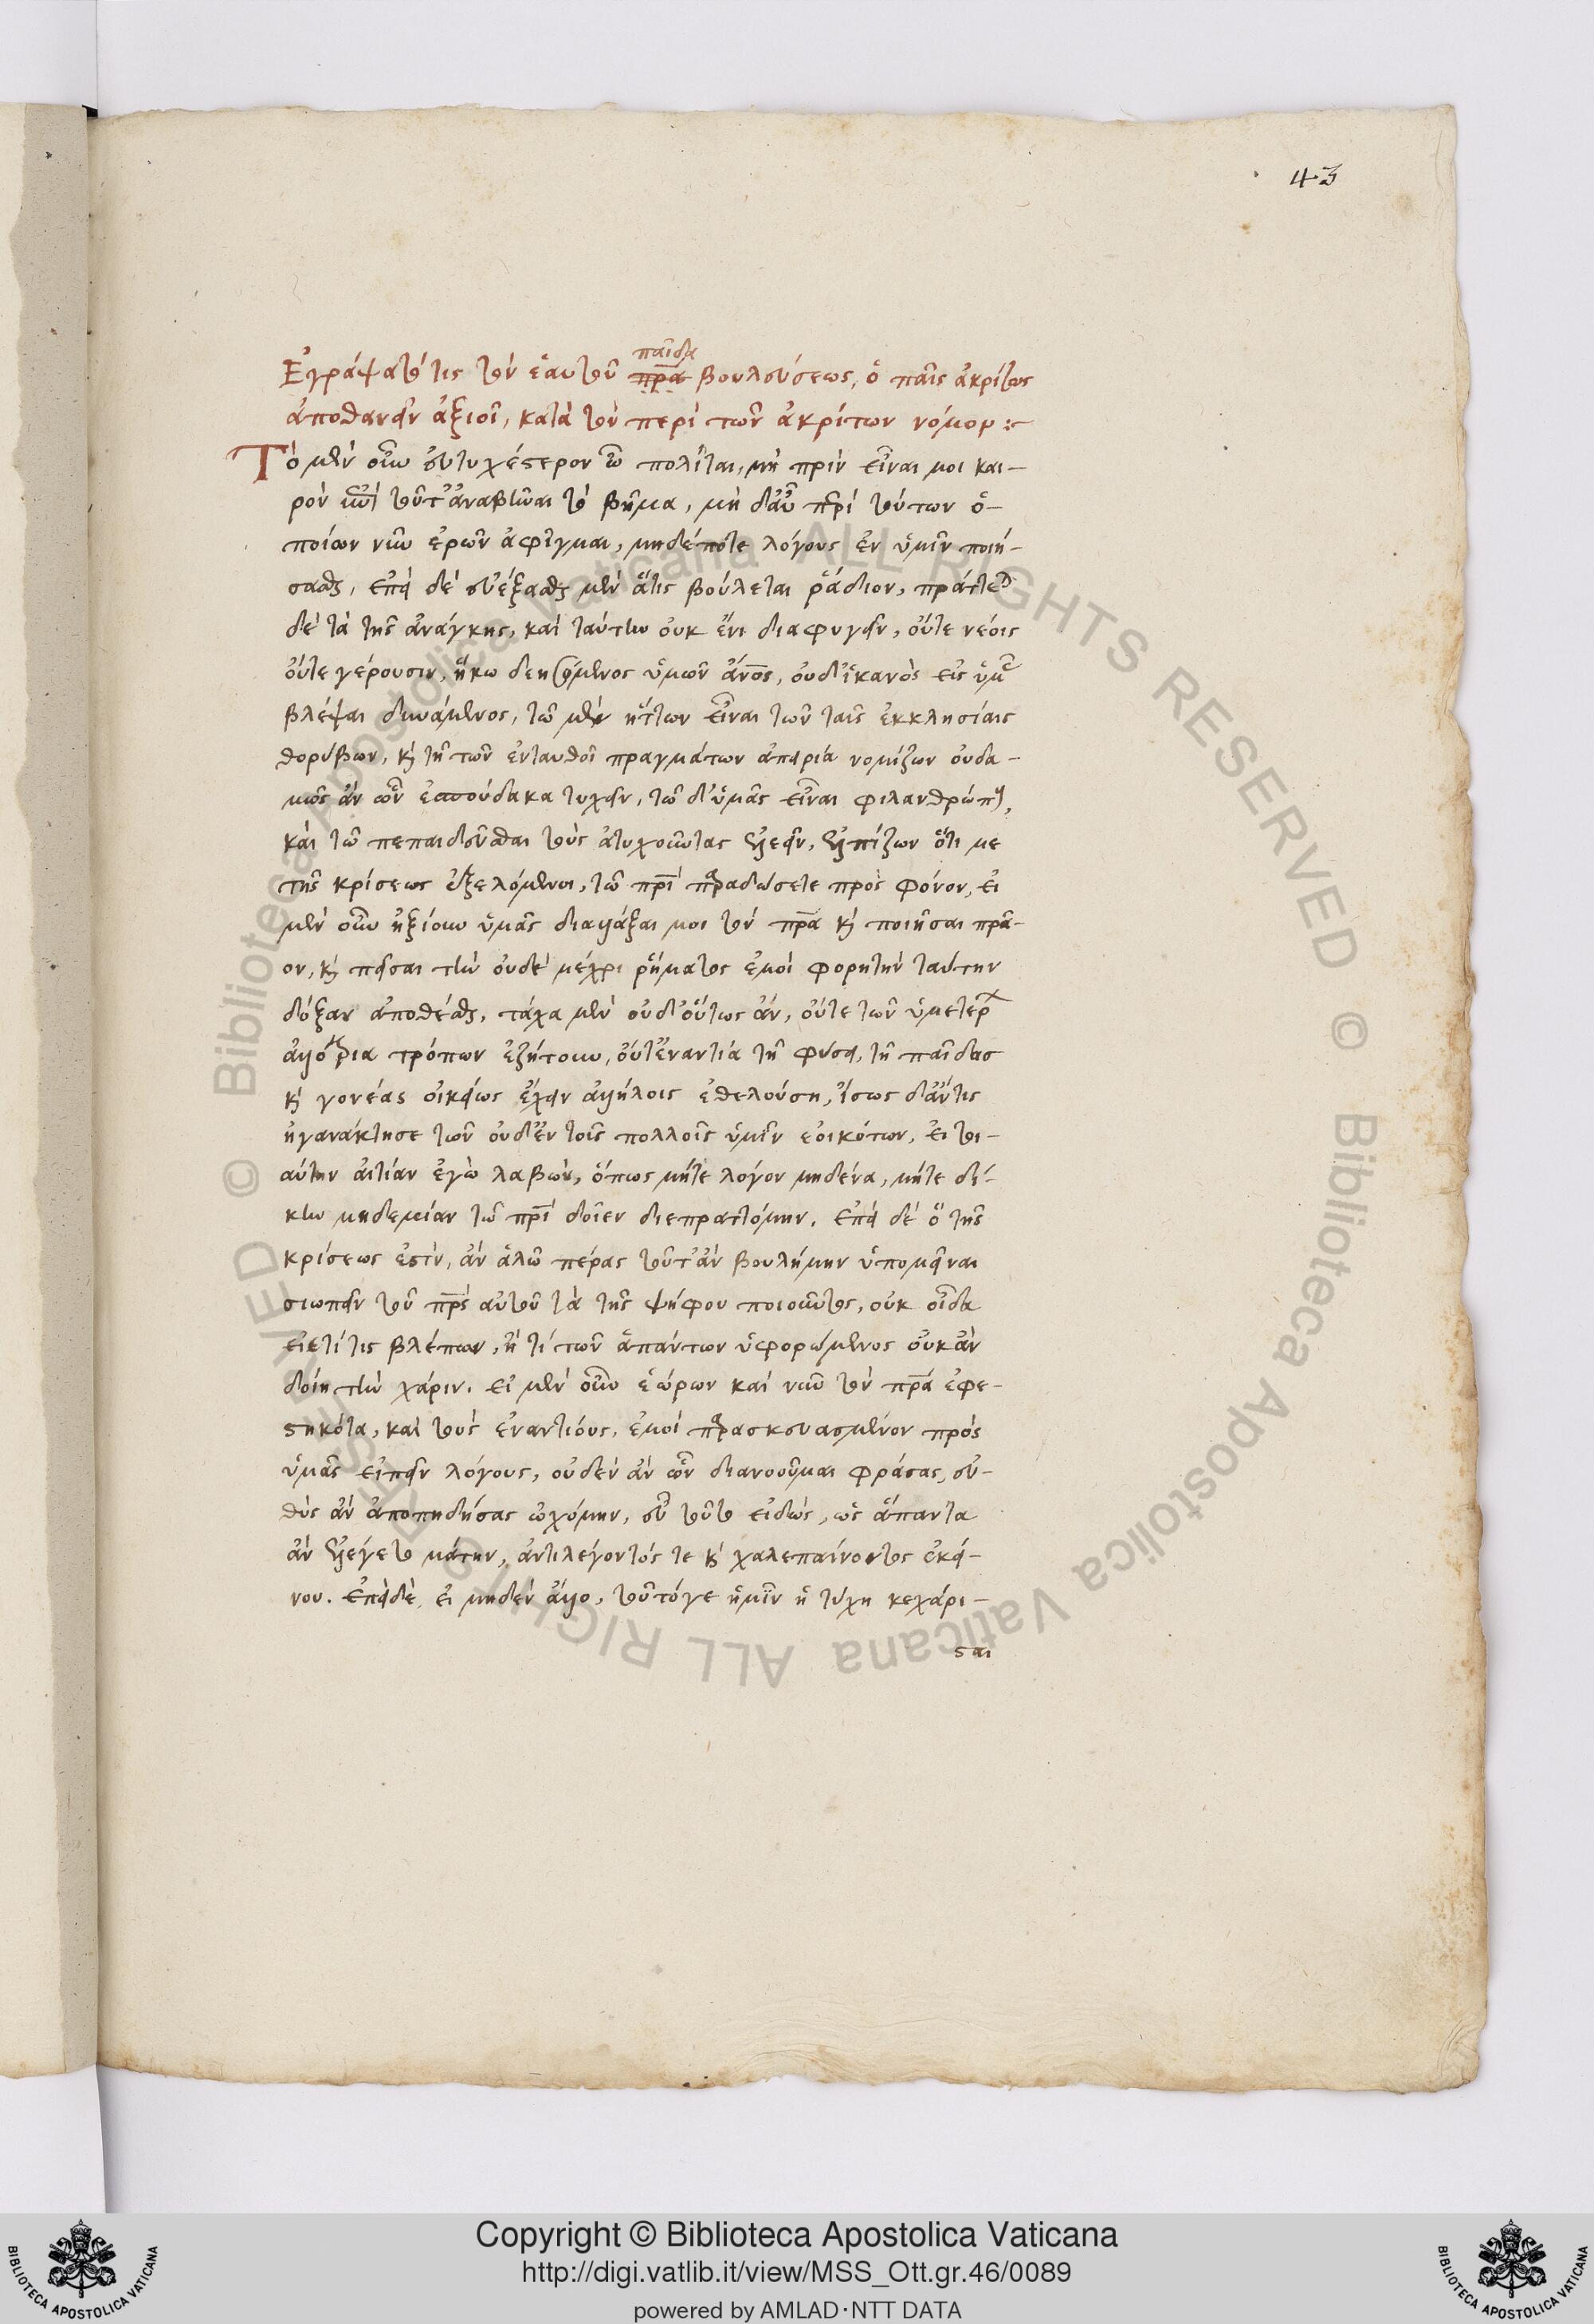 43
παῖδα
Ἐγράψατό τις τὸν ἑαυτοῦ π̅ρ̅α̅ βουλεύσεως, ὁ παῖς ἀκρίτως
ἀποθανεῖν ἀξιοῖ, κατὰ τὸν περὶ τῶν ἀκρίτων νόμον :~
Τὸ μὲν οὖν εὐτυχέστερον ὦ πολῖται, μὴ πρὶν εἶναι μοι και-
ρὸν ἐπὶ τοῦτ' ἀναβῆναι τὸ βῆμα, μὴ δ' αὖ περὶ τούτων ὁ-
ποίων νῦν ἐρῶν ἀφῖγμαι, μηδέποτε λόγους ἐν ὑμῖν ποιή-
σασθαι, ἐπεὶ δὲ εὔξασθαι μὲν ἅ τις βούλεται ῥάδιον, πράττεται
δὲ τὰ τῆς ἀνάγκης, καὶ ταύτην οὐκ ἔνι διαφυγεῖν, οὔτε νέοις
οὔτε γέρουσιν, ἥκω δεησόμενος ὑμῶν ἄν̅ο̅ς, οὐδ' ἱκανὸς εἰς ὑμᾶς
βλέψαι δυνάμενος, τῷ μὲν ἥττων εἶναι τῶν ταῖς ἐκκλησίαις
θορύβων, καὶ τῇ τῶν ἐνταυθοῖ πραγμάτων ἀπειρίᾳ νομίζων οὐδα-
μῶς ἂν ὧν ἐσπούδακα τυχεῖν, τῷ δ' ὑμᾶς εἶναι φιλανθρώπους,
καὶ τῷ πεπαιδεῦσθαι τοὺς ἀτυχοῦντας ἐλεεῖν, ἐλπίζων ὅτι με
τῆς κρίσεως ἐξελόμενοι, τῷ π̅ρ̅ὶ παραδώσετε πρὸς φόνον, εἰ
μὲν οὖν ἠξίουν ὑμᾶς διαλλάξαι μοι τὸν π̅ρ̅α̅ καὶ ποιῆσαι πρᾶ-
ον, καὶ πεῖσαι τὴν οὐδὲ μέχρι ῥήματος ἐμοὶ φορητὴν ταύτην
δόξαν ἀποθέσθαι, τάχα μὲν οὐδ' οὕτως ἂν, οὔτε τῶν ὑμετέρων
ἀλλότρια τρόπων ἐζήτουν, οὔτ' ἐναντία τῇ φύσει, τῇ παῖδας
καὶ γονέας οἰκείως ἔχειν ἀλλήλοις ἐθελούσῃ, ἴσως δ' ἄν τις
ἠγανάκτησε τῶν οὐδ' ἐν τοῖς πολλοῖς ὑμῖν ἐοικότων, εἰ τοι-
αύτην αἰτίαν ἐγὼ λαβὼν, ὅπως μήτε λόγον μηδένα, μήτε δί-
κην μηδεμίαν τῷ π̅ρ̅ὶ δοῖεν διεπραττόμην. ἐπεὶ δὲ ὃ τῆς
κρίσεως ἐστὶν, ἂν ἁλῶ πέρας τοῦτ' ἂν βουλήμην ὑπομεῖναι
σιωπῶν τοῦ π̅ρ̅ς̅ αὐτοῦ τὰ τῆς ψήφου ποιοῦντος, οὐκ οἶδα
εἰετί τις βλέπων, ἢ τί τῶν ἁπάντων ὑφορώμενος οὐκ ἂν
δοίη τὴν χάριν. εἰ μὲν οὖν ἑώρων καὶ νῦν τὸν π̅ρ̅α̅ ἐφε-
στηκότα, καὶ τοὺς ἐναντίους, ἐμοὶ παρασκευασμένον πρὸς
ὑμᾶς εἰπεῖν λόγους, οὐδὲν ἂν ὧν διανοοῦμαι φράσας, εὐ-
θὺς ἂν ἀποπηδήσας ᾠχόμην, εὖ τοῦτο εἰδὼς, ὡς ἅπαντα
ἂν ἐλέγετο μάτην, ἀντιλέγοντός τε καὶ χαλεπαίνοντος ἐκεί-
νου. ἐπεὶ δὲ, εἰ μηδὲν ἄλλο, τοῦτό γε ἡμῖν ἡ τύχη κεχάρι-
σται
© Biblioteca Apostolica Vaticana ALL RIGHTS RESERVED © Biblioteca Apostolica Vaticana ALL RIGHTS RESERVED
Copyright © Biblioteca Apostolica Vaticana
http://digi.vatlib.it/view/MSS_Ott.gr.46/0089
powered by AMLAD·NTT DATA
BIBLIOTECA APOSTOLICA VATICANA
BIBLIOTECA APOSTOLICA VATICANA